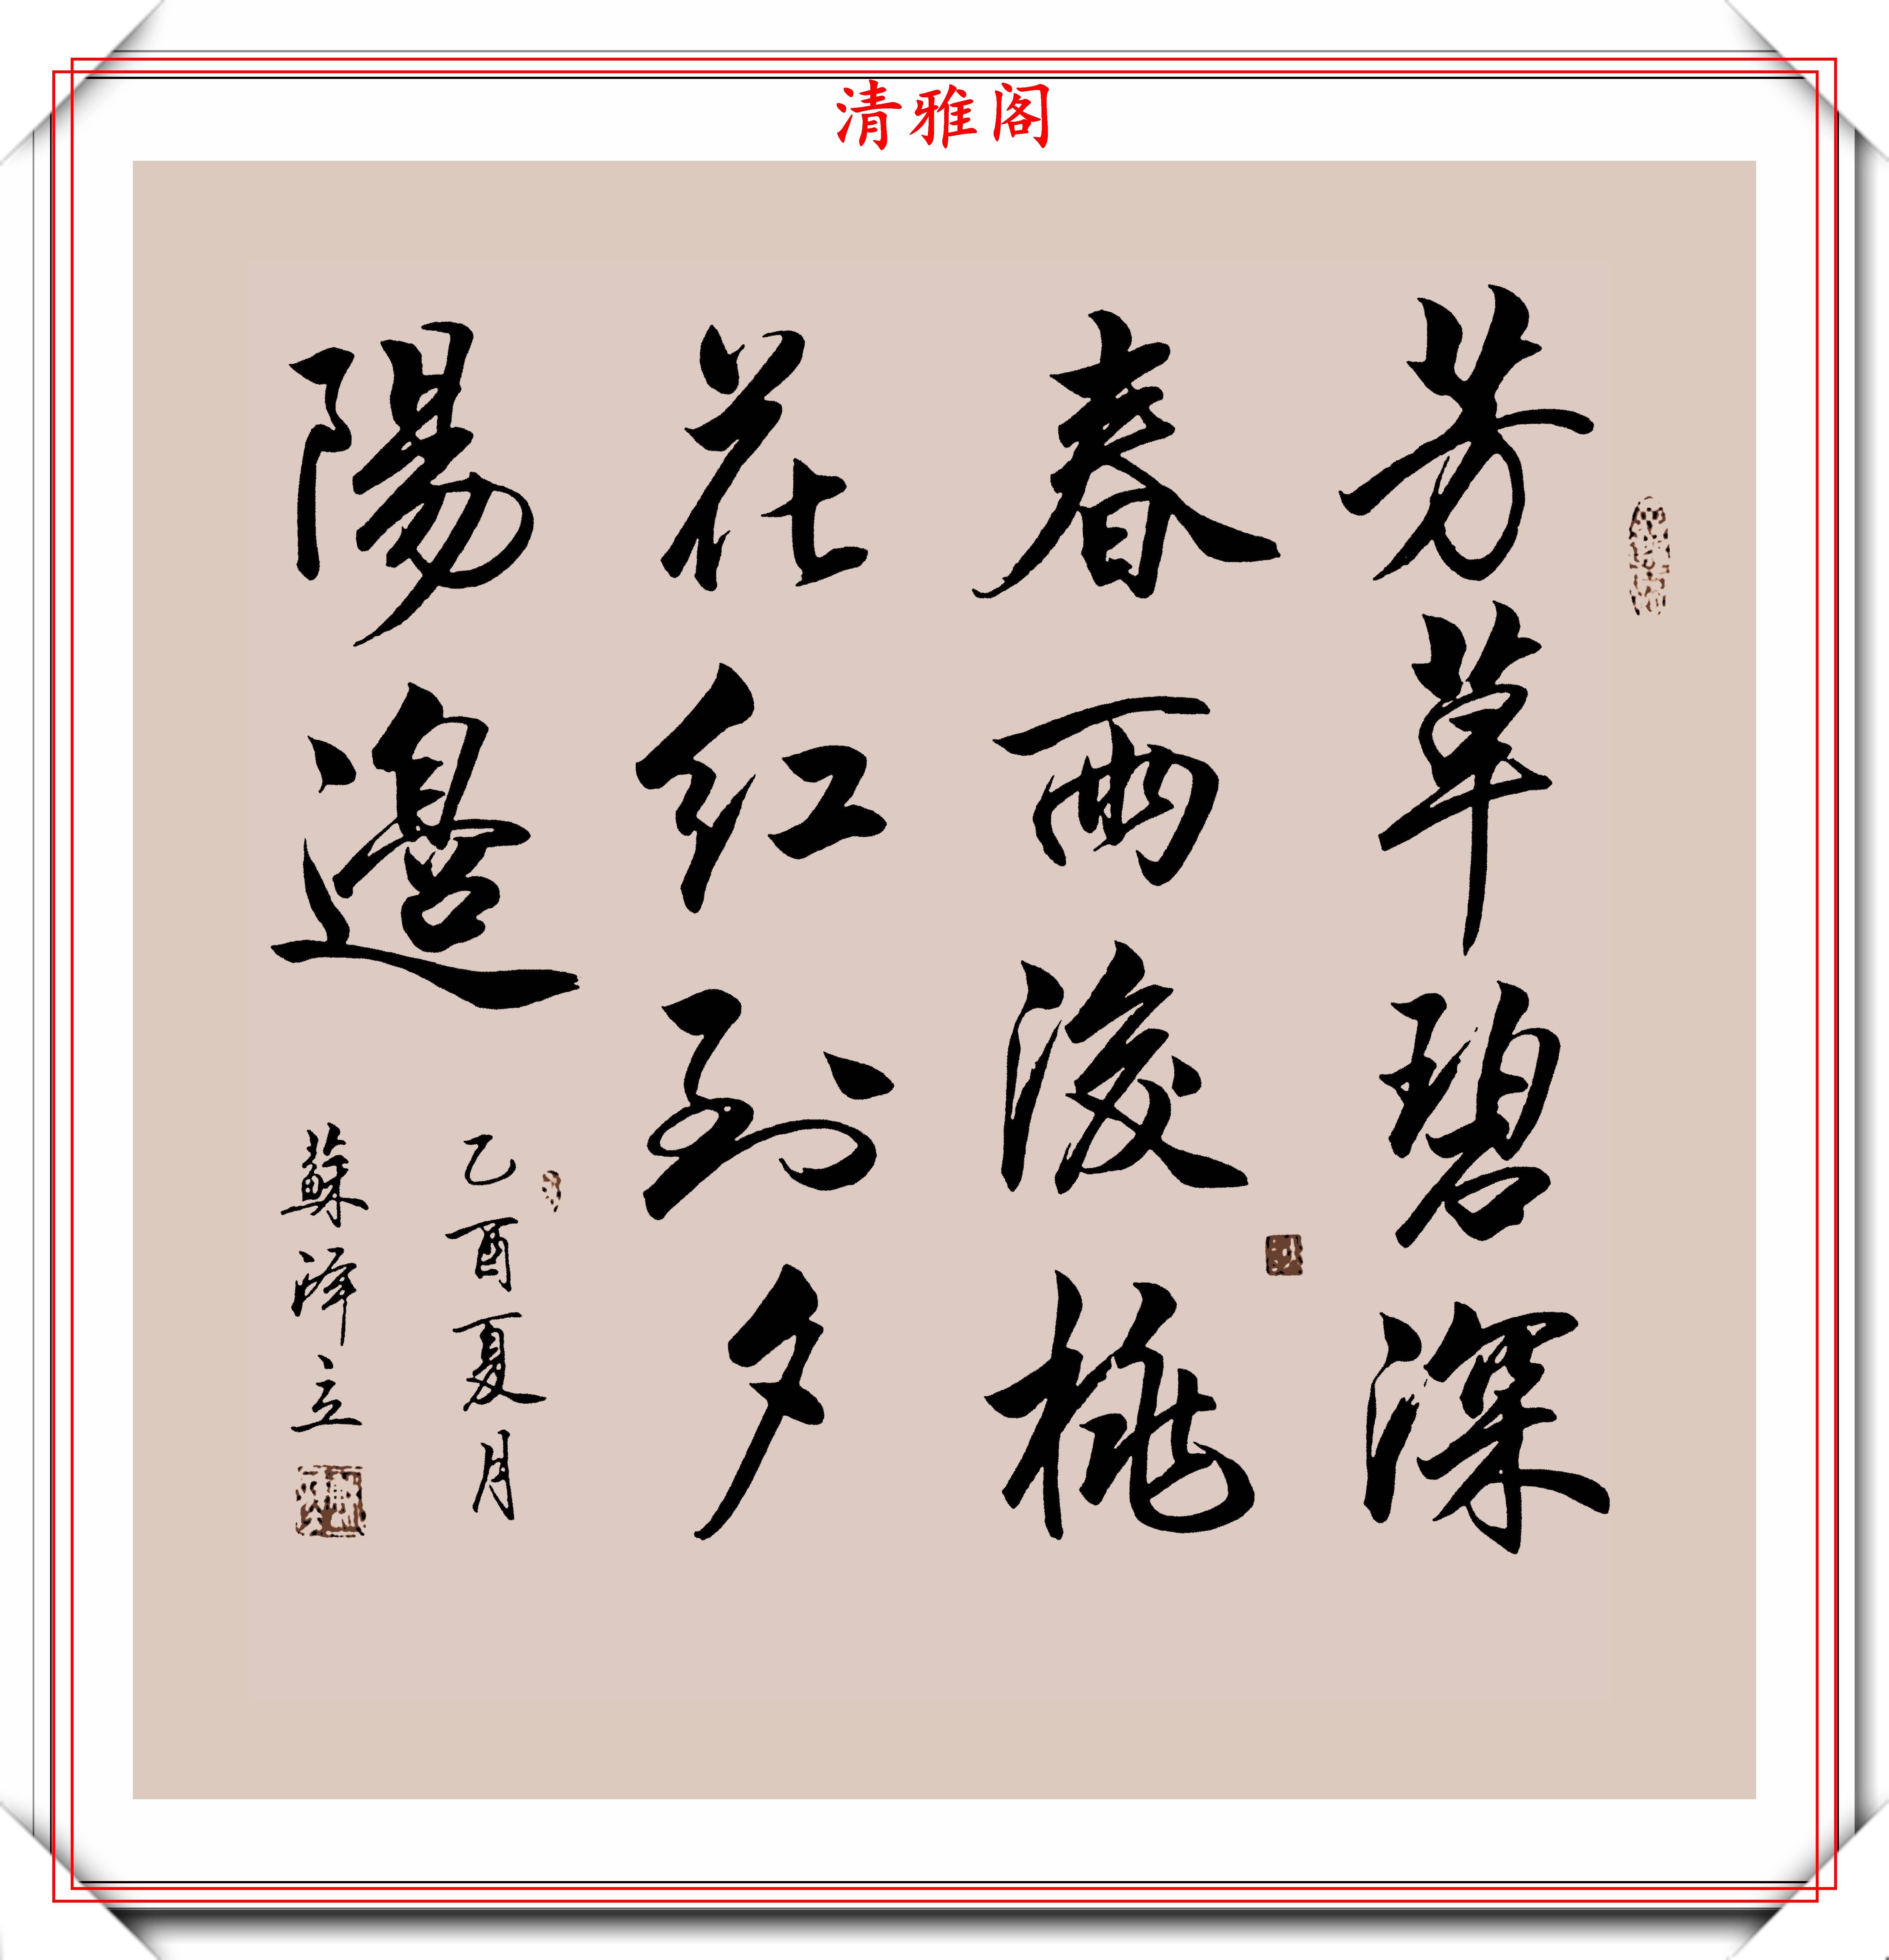 清雅阁
芳草碧深
春雨後桃
花红到夕
陽邊
乙酉夏月
蘇澤立